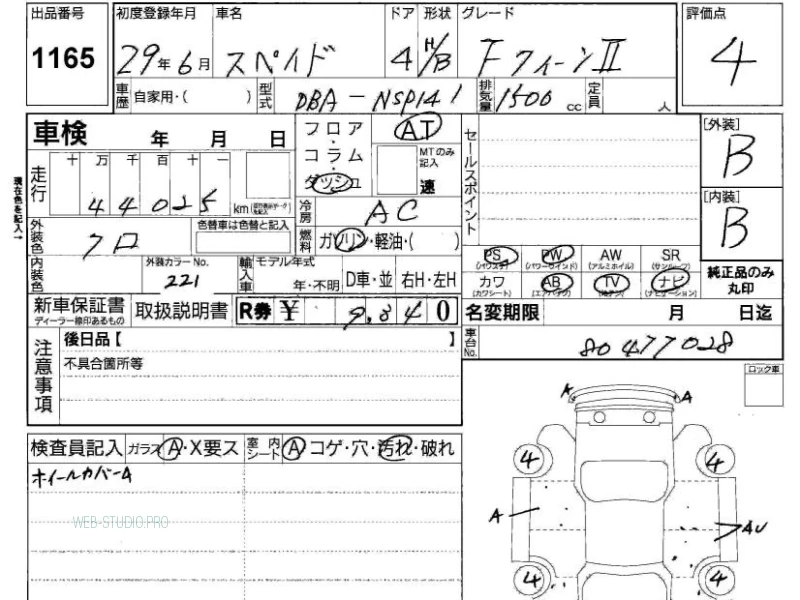 出品番号 初度登録年月 車名 ドア 形状 グレード 評価点
1165 29年6月 スペイド 4 H/B Fクイーン II 4
車歴 自家用・( ) 型式 DBA-NSP141 排気量 1500cc 定員 人
車検 年 月 日 フロア AT セールスポイント [外装]
コラム MTのみ記入 B
ダッシュ 速
走行 十 万 千 百 十 一
44025 km
[内装]
B
現在色を記入→
冷房 AC
外装色 クロ 色替車は色替と記入 燃料 ガソリン・軽油・( )
PS PW AW SR
(パワステ) (パワーウインド) (アルミホイル) (サンルーフ)
内装色 外装カラーNo. 221 輸入車 モデル年式 年・不明 D車・並 右H・左H
カワ AB TV ナビ 純正品のみ丸印
(カワシート) (エアバッグ) (ナビゲーション)
新車保証書 取扱説明書 R券 ¥ 9,840 名変期限 月 日迄
ディーラー捺印あるもの
注意事項 後日品【 】 車台No. 80477028
不具合箇所等
ロック車
A A
検査員記入 ガラス A・X要ス 室内シート A コゲ・穴・汚れ・破れ
ホイールカバーA
4 4
WEB-STUDIO.PRO
A AU
4 4